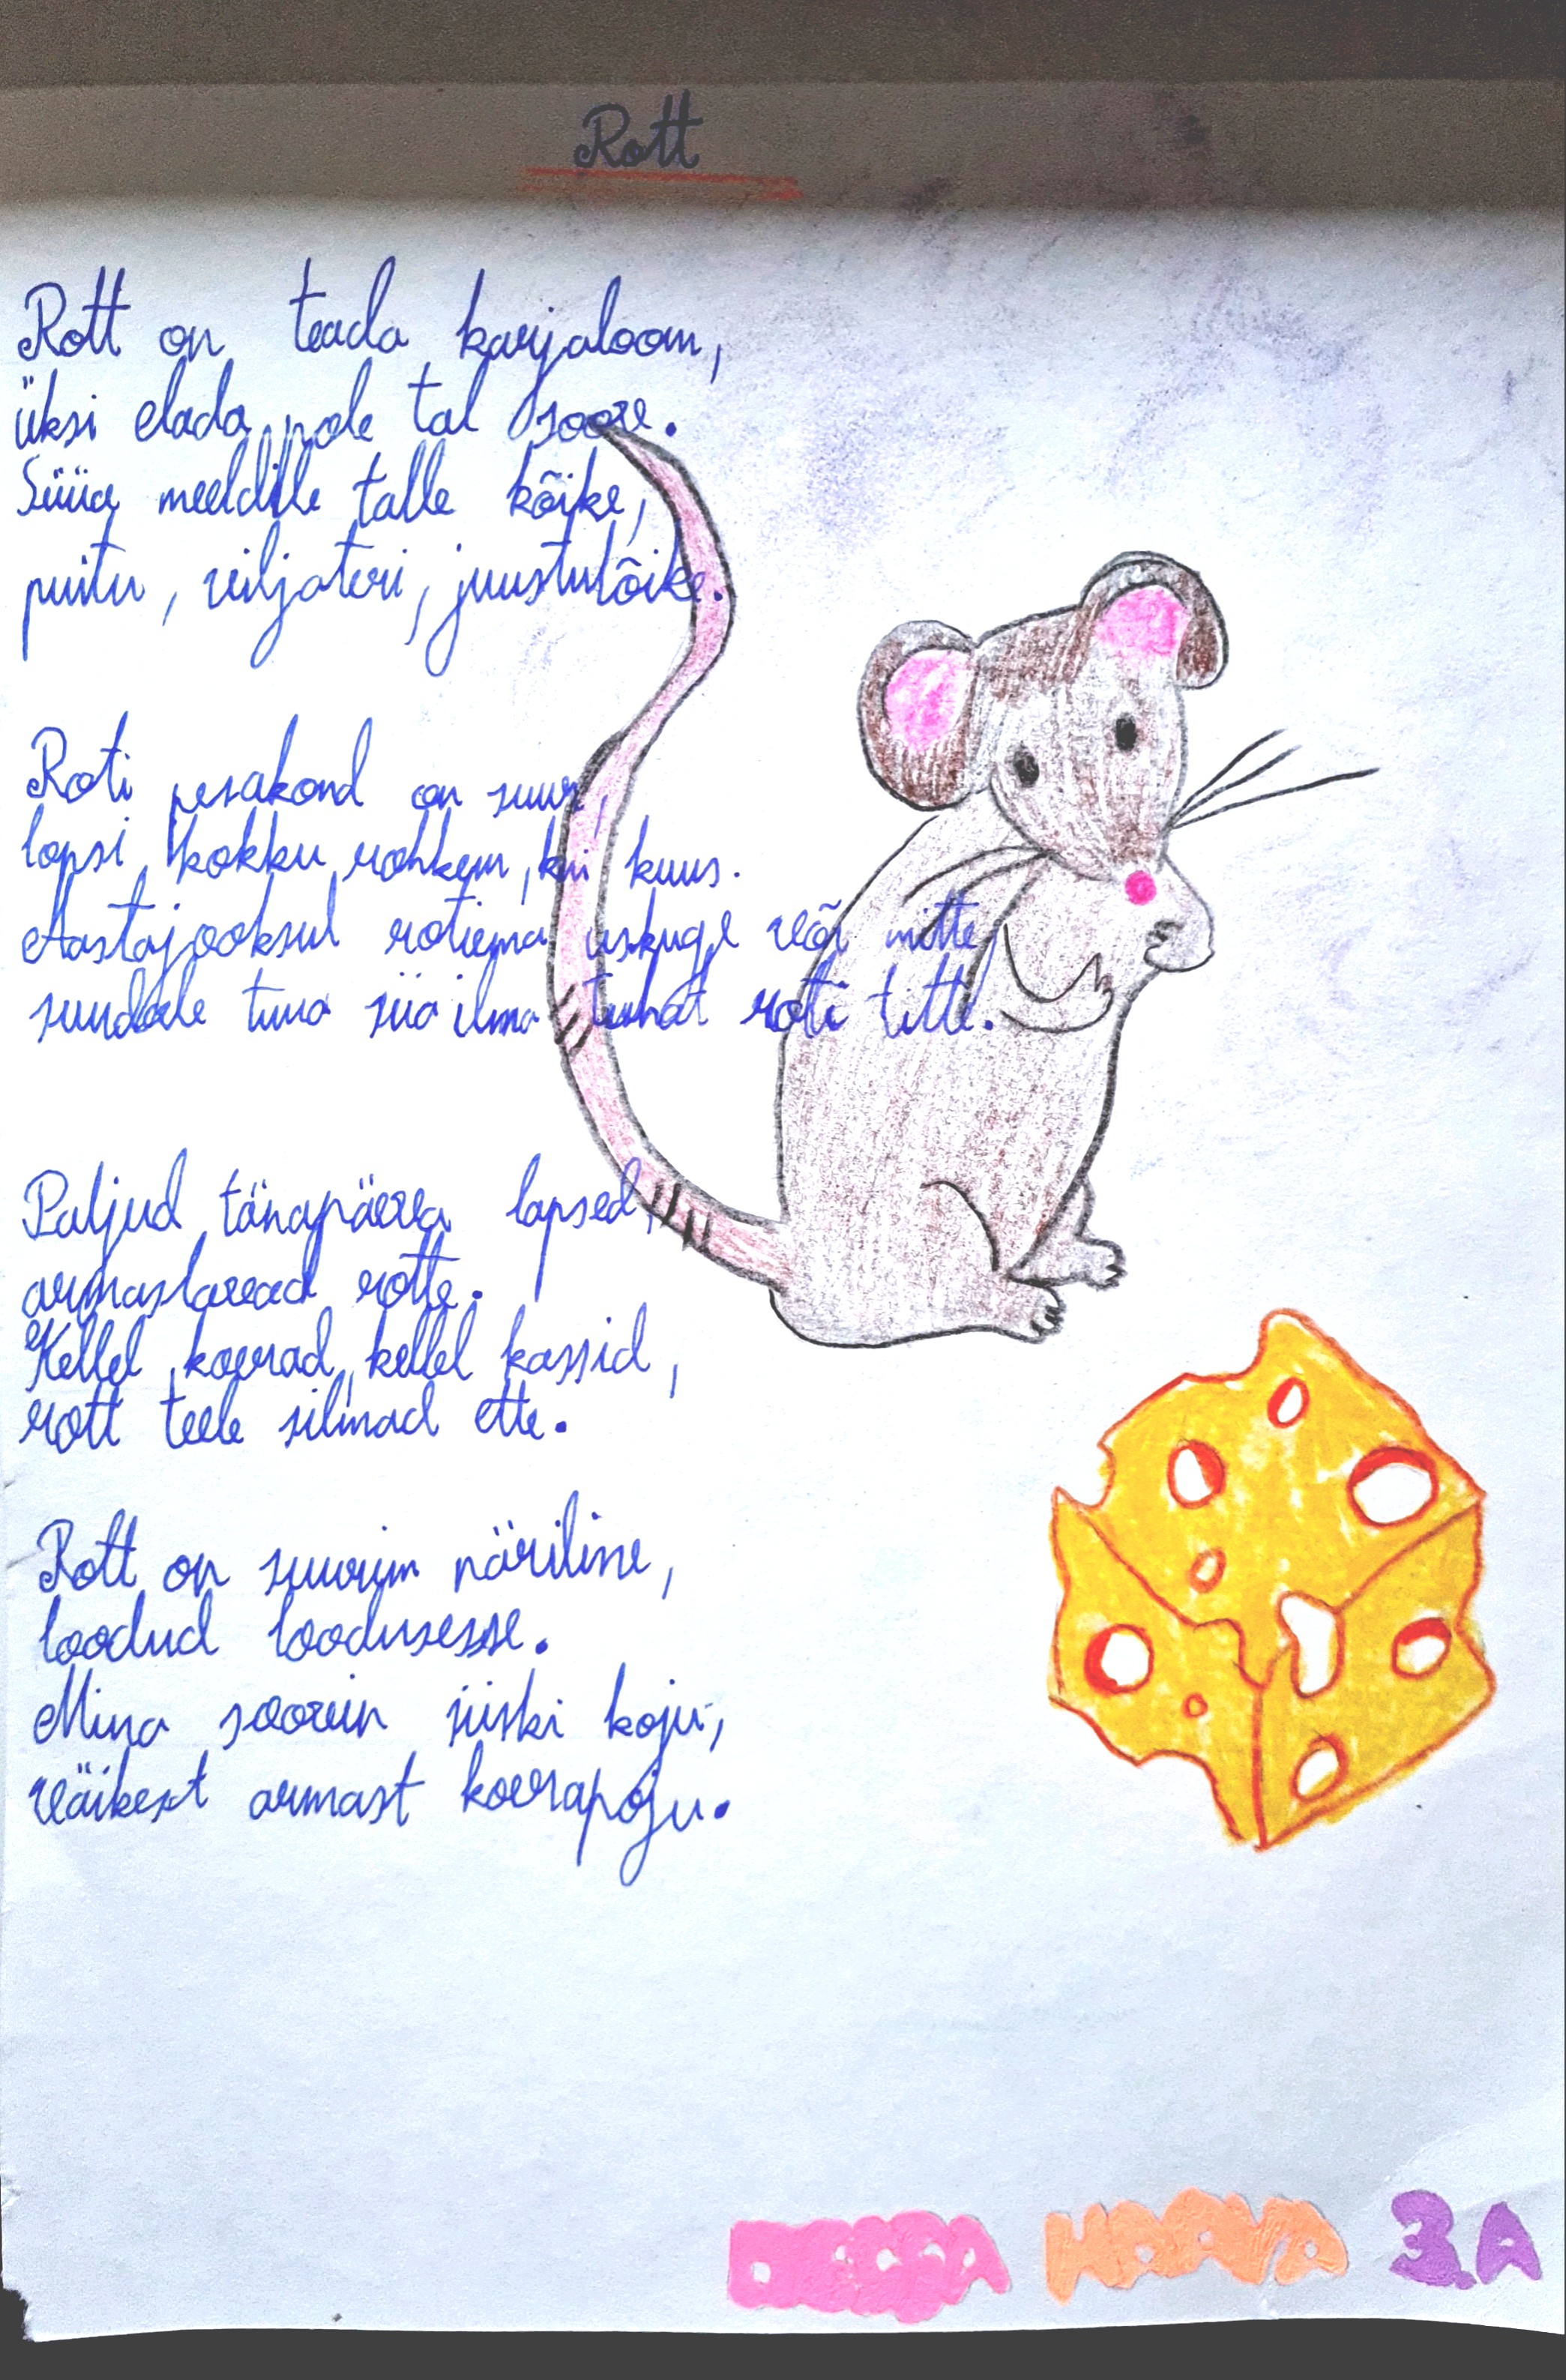 Rott
Rott on teada karjaloom,
üksi elada pole tal soov.
Süüa meeldille talle kõike,
puitu, viljateri, juustulõike.
Roti pesakond on suur,
lapsi kokku rohkem, kui kuus.
Aastajooksul rotiema uskuge või mitte,
suudab tuua siia ilma tuhat roti titte.
Paljud tänapäeva lapsed,
armastavad rotte.
Kellel koerad, kellel kassid,
rott teele silmad ette.
Rott on suurim näriline,
loodud loodusesse.
Mina soovin siiski koju,
väikest armast koerapoju.
3.A